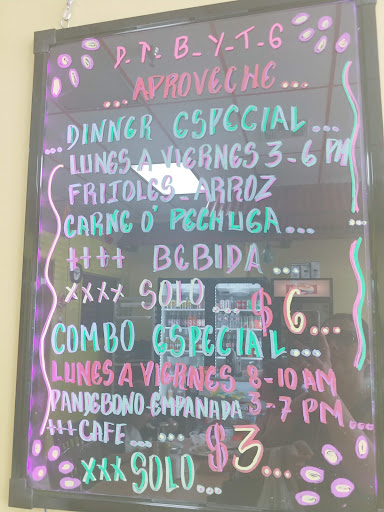 D.T. B-Y-T-G
... APROVECHE...
...DINNER ESPECIAL...
LUNES A VIERNES 3-6 PM
FRIJOLES-ARROZ
CARNE O' PECHUGA...
++++ BEBIDA...
xxxx SOLO... $6...
COMBO ESPECIAL...
LUNES A VIERNES 8-10 AM
PANDEBONO-EMPANADA 3-7 PM...
+++CAFE... $3...
xxx SOLO...